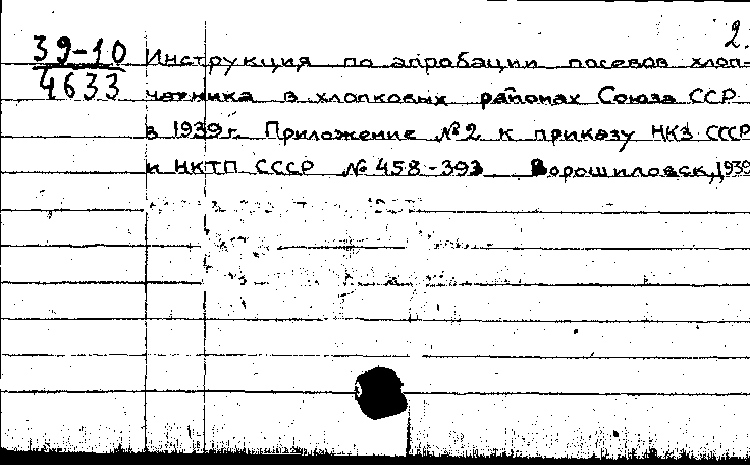 2.
39-10 Инструкция по апробации посевов хлоп-
4633 чатника в хлопковых районах Союза ССР
в 1939 г. Приложение №2 к приказу НКЗ СССР
и НКТП СССР № 458-393 Ворошиловск, 1939